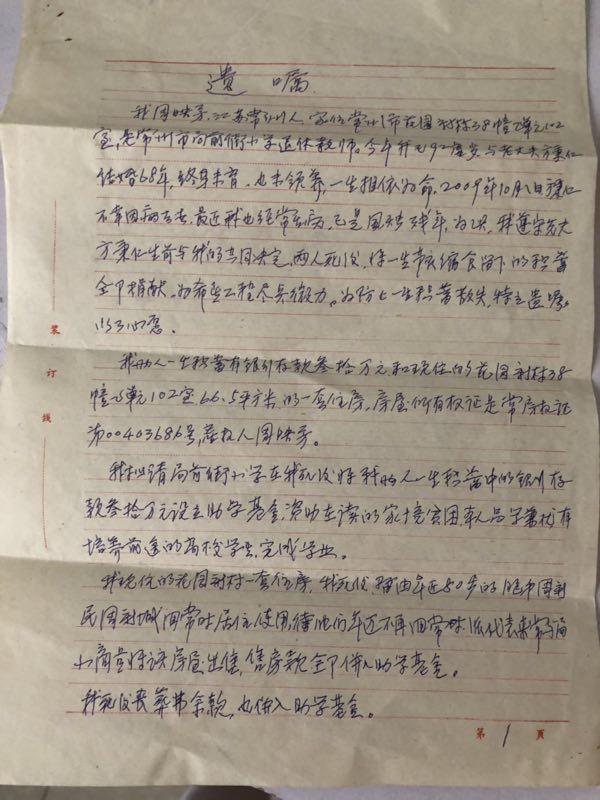 遗嘱
我周映芬,江苏常州人,家住常州市花园新村38幢乙单元102
室,是常州市局前街小学退休教师。今年 92 岁与老丈夫方秉仁
结婚68年,终身未育,也未领养,一生相依为命,2009年10月八日秉仁
不幸因病去世,最近我也经常有病,已是风烛残年,为此,我遵守先夫
方秉仁生前与我的共同决定,两人死后,将一生节衣缩食留下的积蓄
全部捐献,为希望工程尽点微力。为防止一生积蓄散失,特立遗嘱,
以了心愿。
我两人一生积蓄有银行存款叁拾万元和现住的花园新村38
幢乙单元102室66.5平方米的一套住房,房屋所有权证是常房权证
第00403686号,产权人周映芬。
我拟请局前街小学在我死后将我两人一生积蓄中的银行存
款叁拾万元设立助学基金,资助在读的家境贫困,本人品学兼优有
培养前途的高校学生,完成学业。
我现住的花园新村一套住房,我死后,留由年近80岁的胞弟周新
民周新城回常时居住使用,待他们年迈不再回常时,派代表来常与局
小商量将该房屋出售,售房款全部併入助学基金。
我死后丧葬费余款,也併入助学基金。
第 1 頁
装
订
线